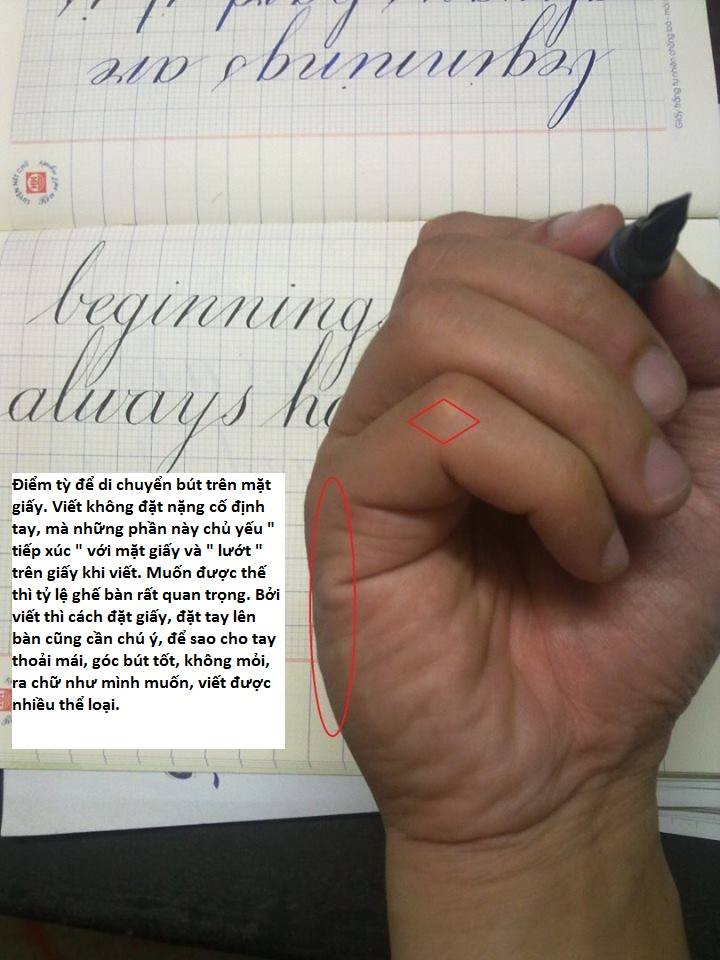 beginnings are
Giấy trắng tự nhiên chống loá - mỏi
LUYỆN NÉT CHỮ
beginnings
always ha
Điểm tỳ để di chuyển bút trên mặt
giấy. Viết không đặt nặng cố định
tay, mà những phần này chủ yếu "
tiếp xúc " với mặt giấy và " lướt "
trên giấy khi viết. Muốn được thế
thì tỷ lệ ghế bàn rất quan trọng. Bởi
viết thì cách đặt giấy, đặt tay lên
bàn cũng cần chú ý, để sao cho tay
thoải mái, góc bút tốt, không mỏi,
ra chữ như mình muốn, viết được
nhiều thể loại.